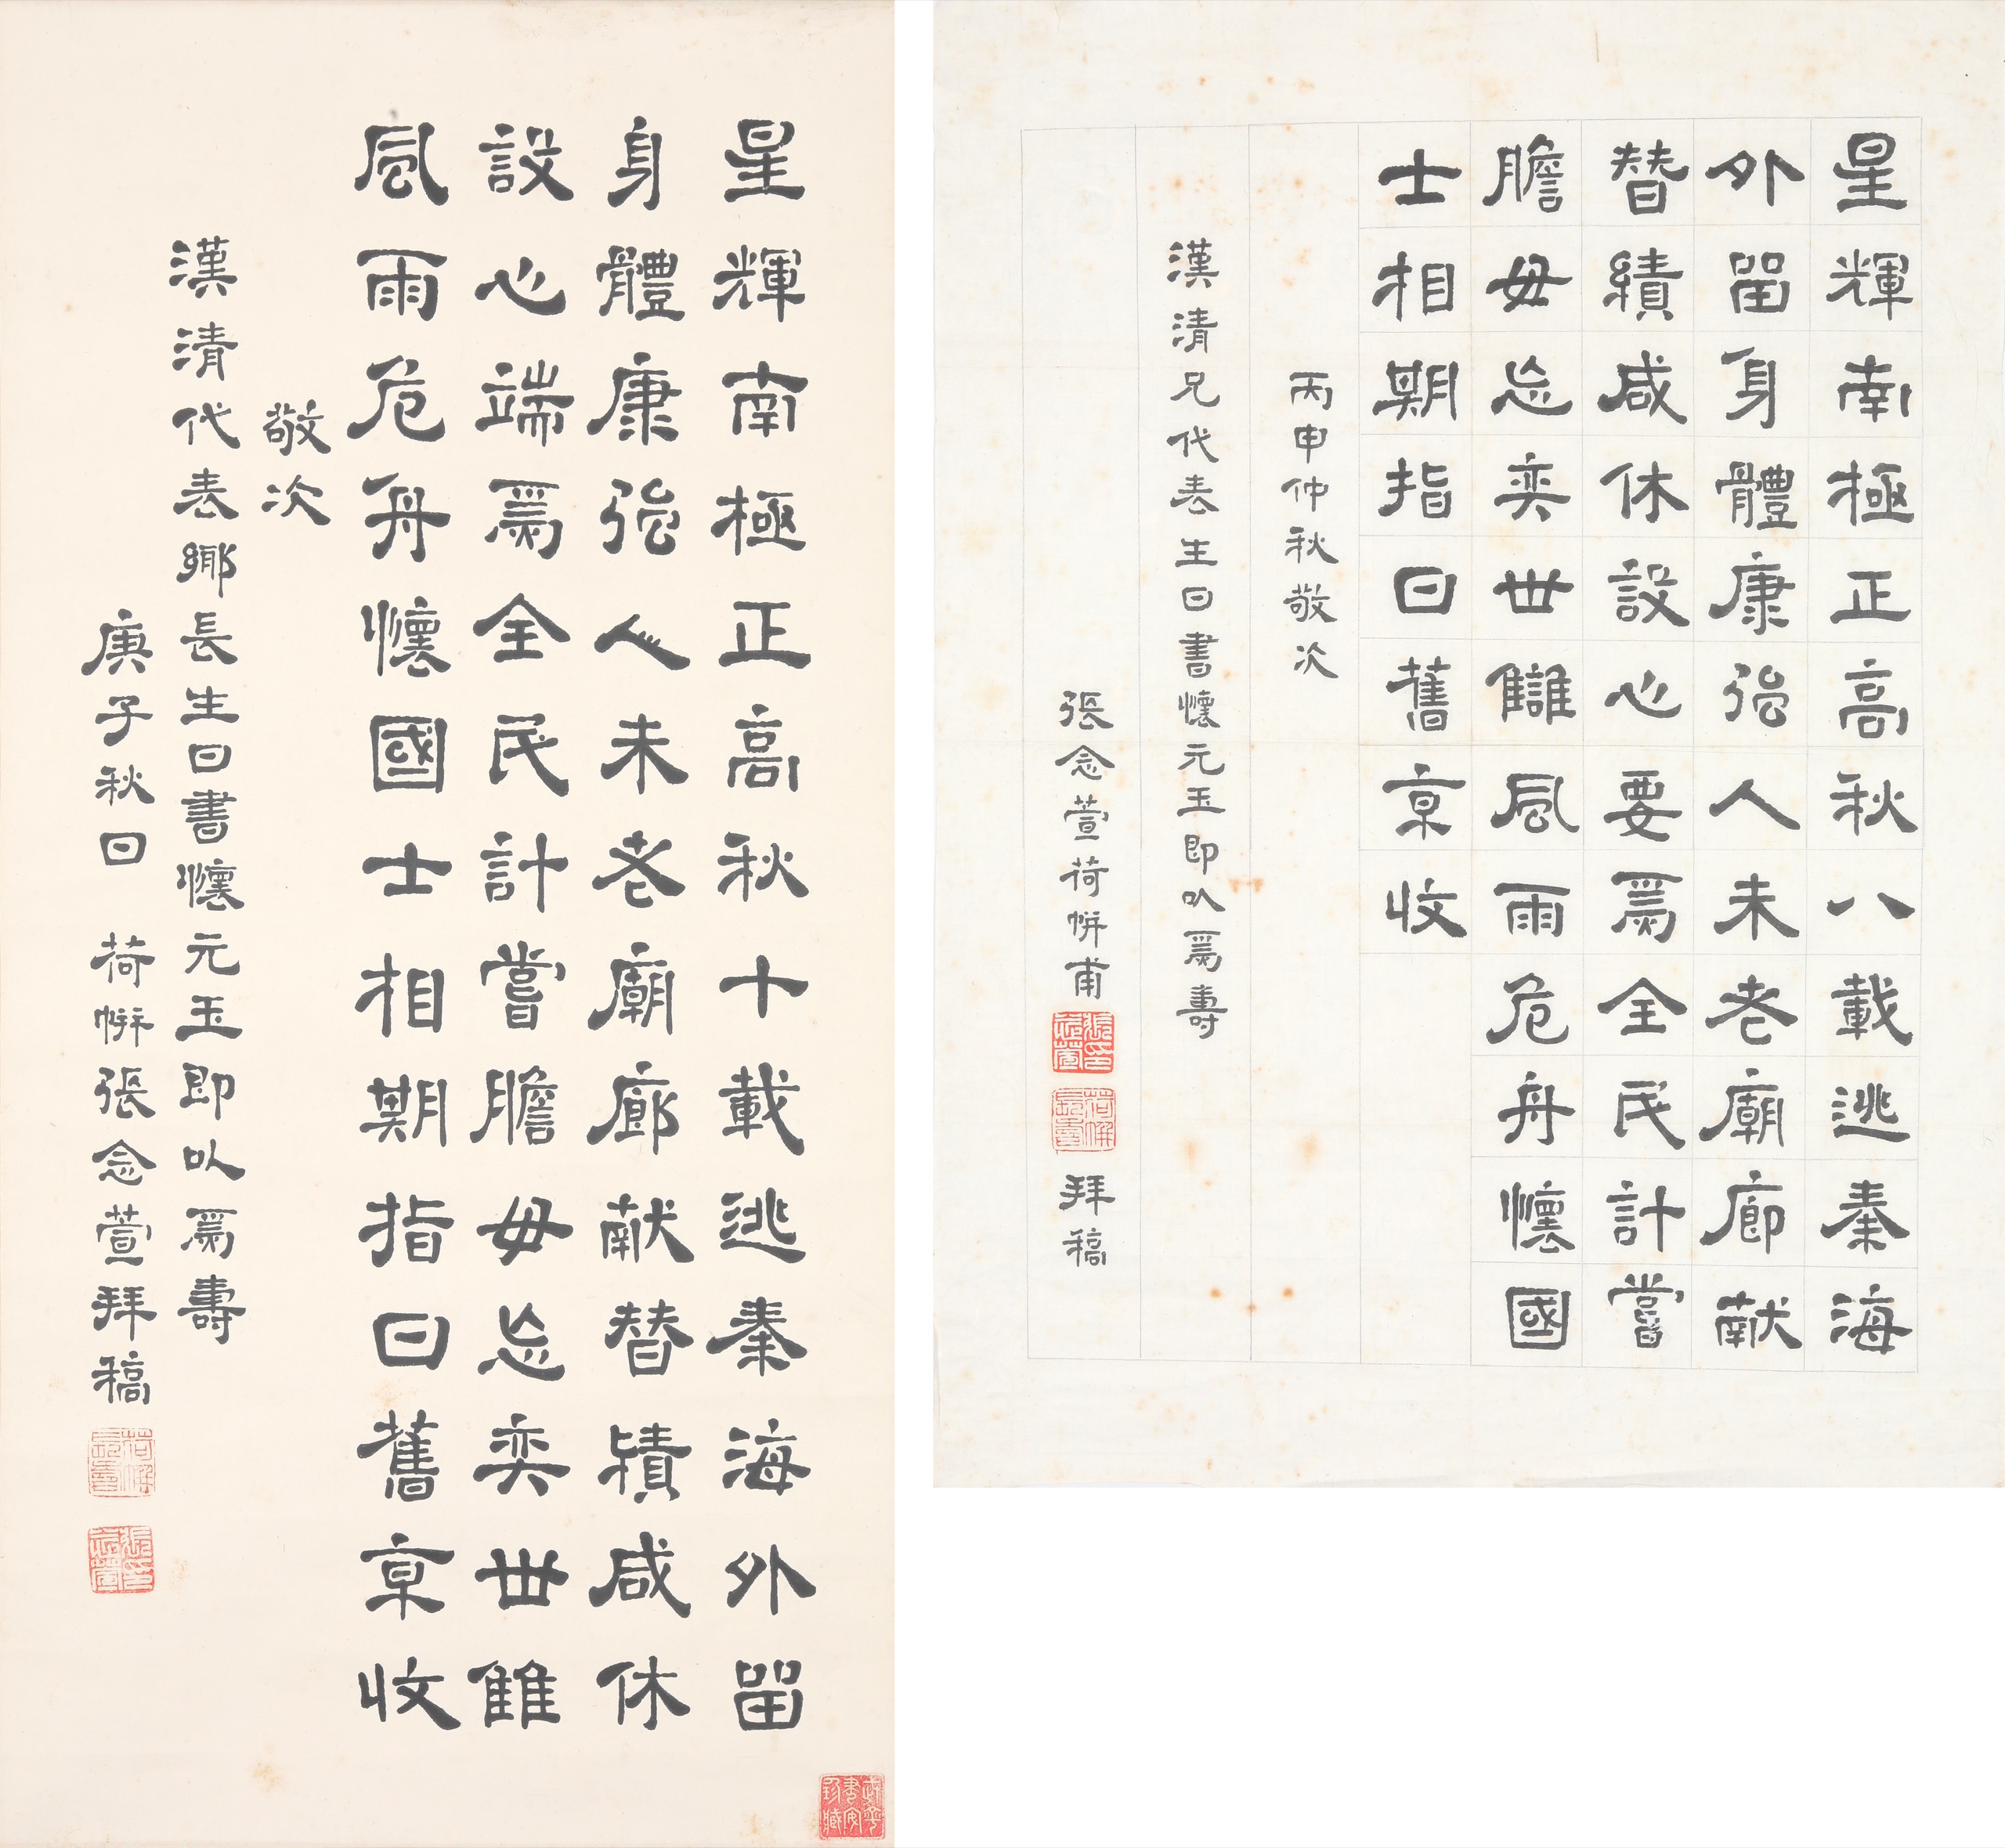 星輝南極正高秋十載逃秦海外留
身體康強人未老廟廊献替績咸休
設心端爲全民計嘗膽毋忘奕世雠
風雨危舟懷國士相期指日舊京收
敬次
漢清代表鄉長生日書懷元玉即以爲壽
庚子秋日 荷缾張念萱拜稿
星輝南極正高秋八載逃秦海
外留身體康強人未老廟廊献
替績咸休設心要爲全民計嘗
膽毋忘奕世讎風雨危舟懷國
士相期指日舊京收
丙申仲秋敬次
漢清兄代表生日書懷元玉即以爲壽
張念萱荷缾甫
拜稿